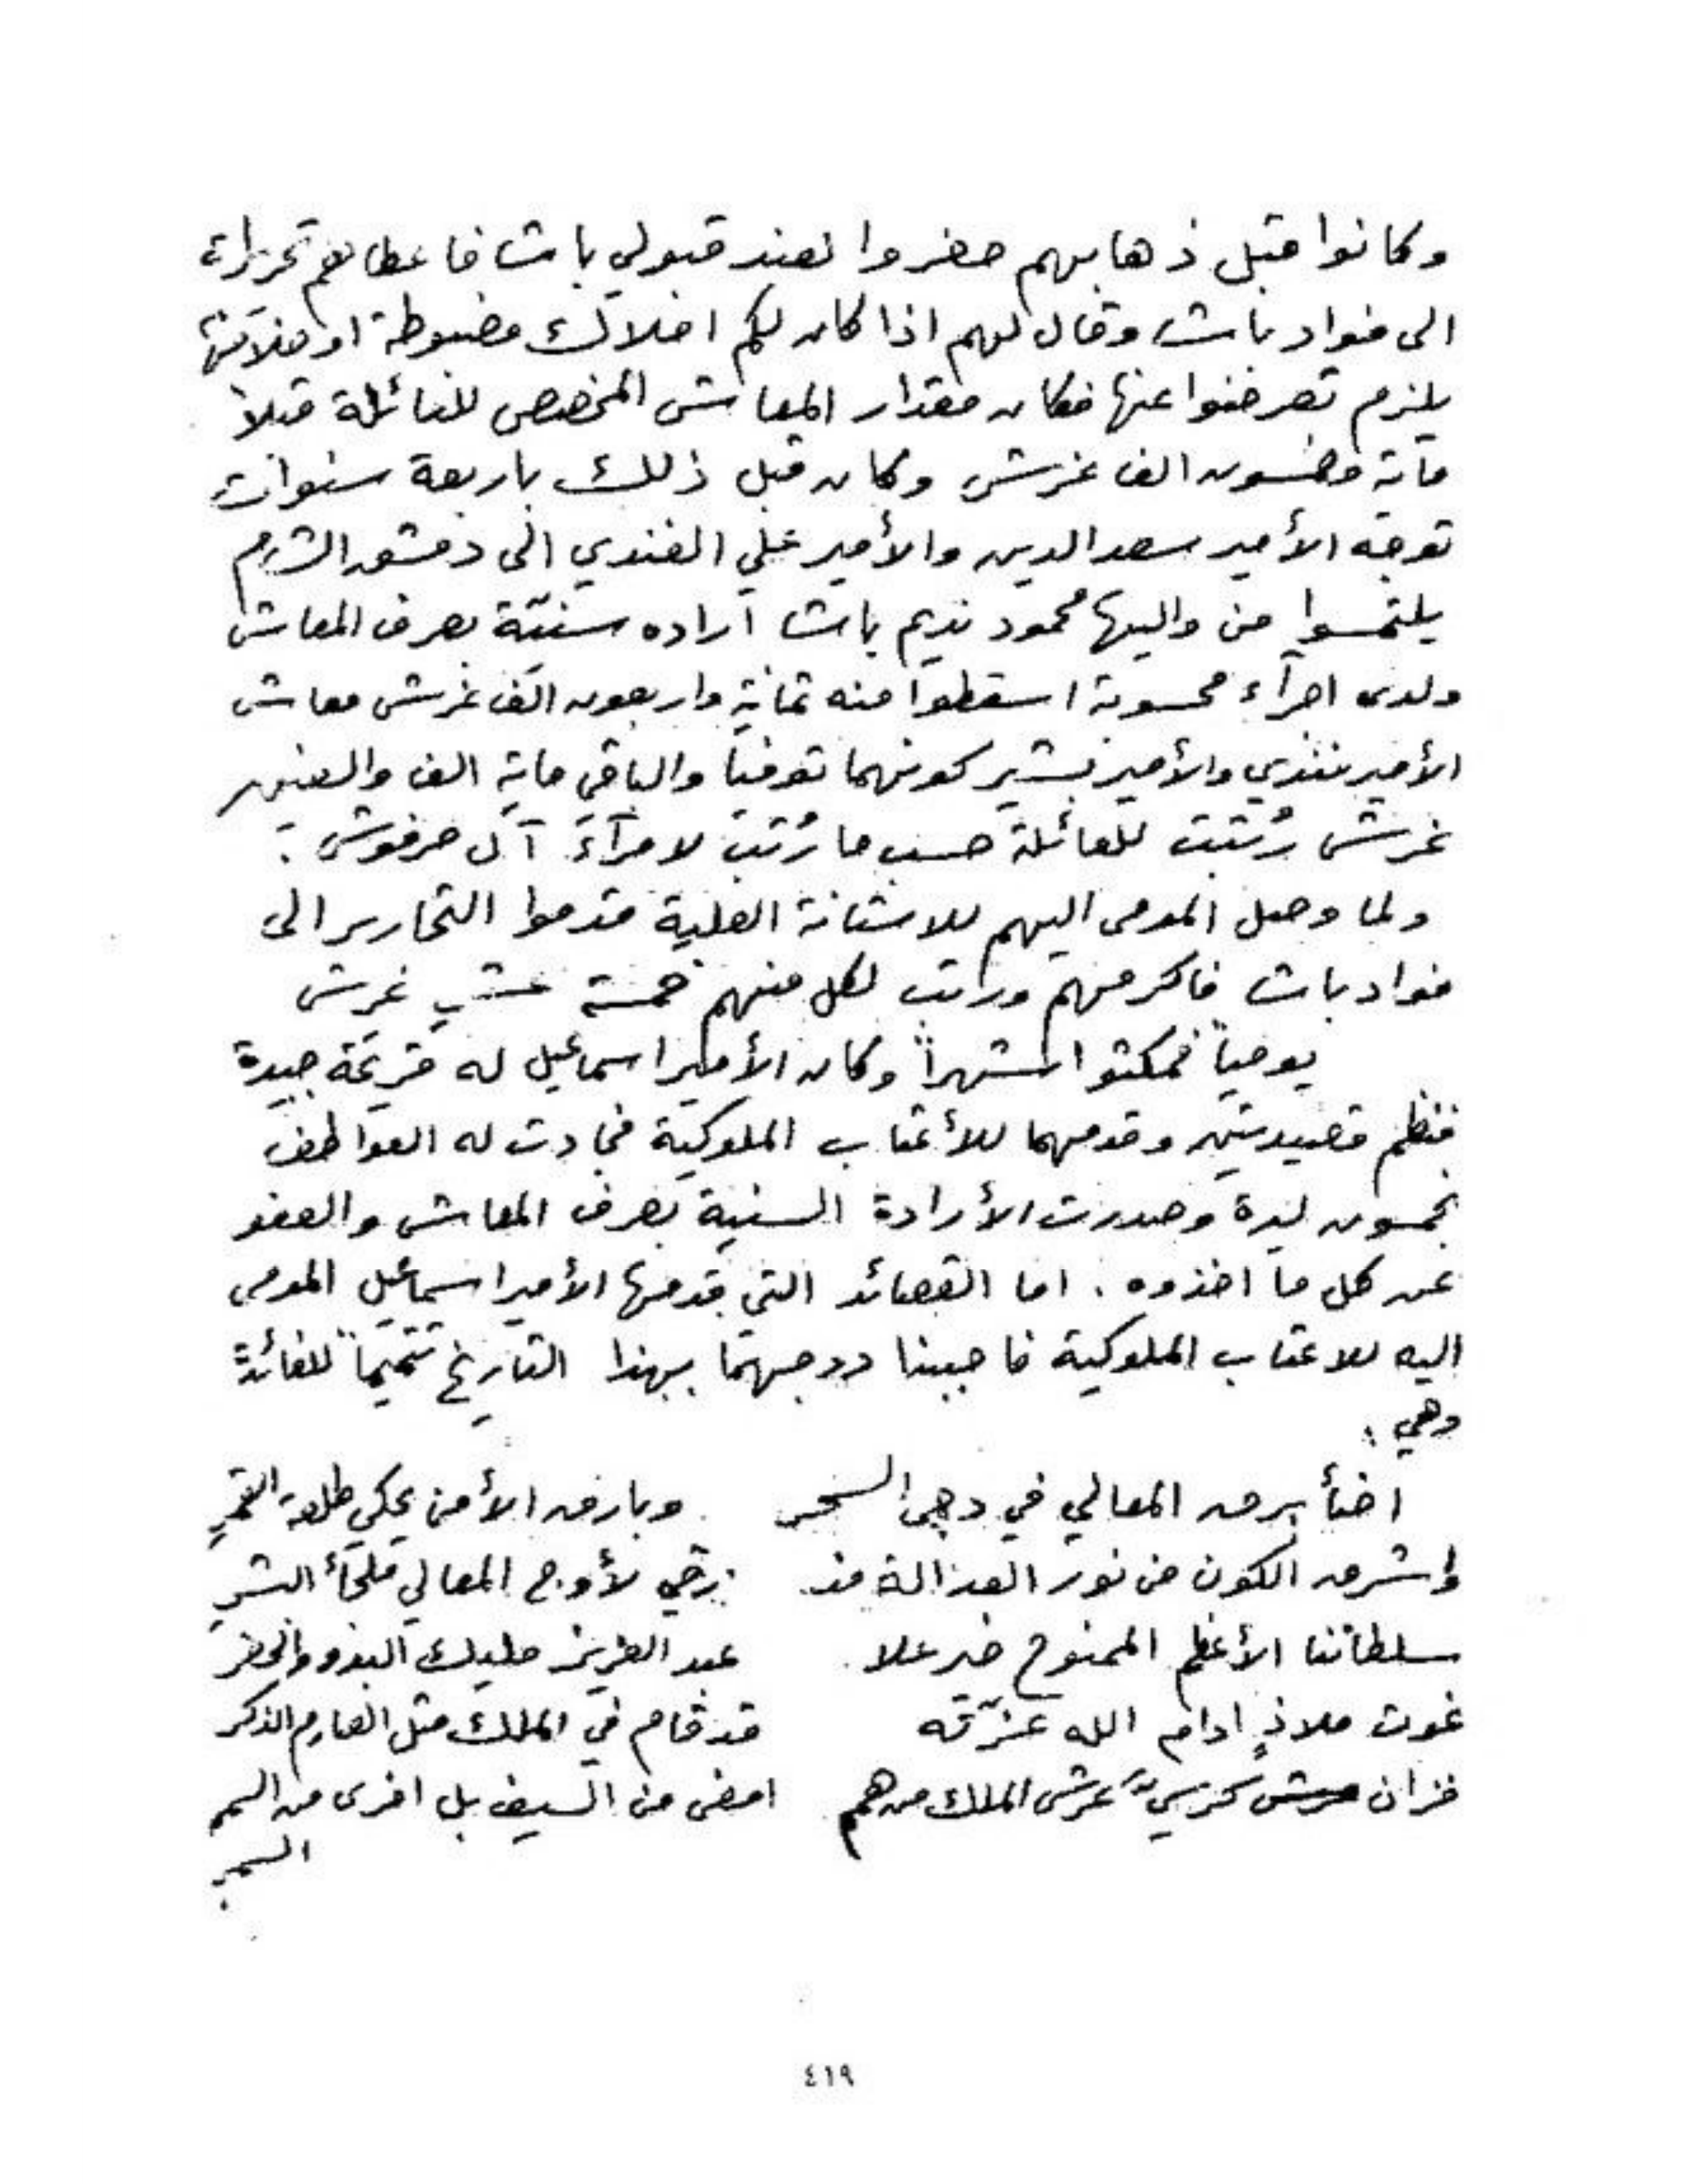 وكانوا قبل ذهابهم حضروا لعند قبولي باشا فاعطاهم تحريرات
الى فواد باشا وقال لهم اذا كان لكم املاك مضبوطة او خلافها
يلزم تعرضوا عنها فكان مقدار المعاش المخصص للعائلة قبلاً
ماية وخمسون الف غرش وكان قبل ذلك باربعة سنوات
توجه الأمير سعد الدين والأمير علي افندي الى دمشق الشام
يلتمسوا من واليها محمود نديم باشا اراده سنيّة بصرف المعاش
ولدى اجرآء محسوبة اسقطوا منه ثمانية واربعون الف غرش معاش
الأمير فندي والأمير بشير كونهما توفيا والباقي ماية الف والفين
غرش رُتبت للعائلة حسب ما رُتب لامرآء آل حرفوش .
ولما وصل المومى اليهم للاستانة العلية قدموا التحارير الى
فواد باشا فاكرمهم وراتب لكل منهم خمسة عشر غرش
يومياً فمكثوا اشهراً وكان الأمير اسماعيل له قريحة جيدة
فنظم قصيدتين وقدمهما للأعتاب الملوكية فجادت له العواطف
بخمسون ليرة وصدرت الأرادة السنية بصرف المعاش والعفو
عن كل ما اخذوه . اما القصائد التي قدمها الأمير اسماعيل المومى
اليه للاعتاب الملوكية فاحببنا درجهما بهذا التاريخ تتميماً للفائدة
وهي :
اضأ برق المعالي في دجى السحر وبارق الأمن يحكي طلعة القمرِ
واشرق الكون من نور العدالة مذ رقي لأوج المعالي ملجأ البشرِ
سلطاننا الأعظم الممنوح خير علا عبد العزيز مليك البدو والحضر
غوث ملاذٍ ادام الله عزّته قد قام في الملك مثل الصارم الذكر
فزان كرسيَّ عرش الملك من همم امضى من السيف بل افرى من السمر
السمرِ
٤١٩